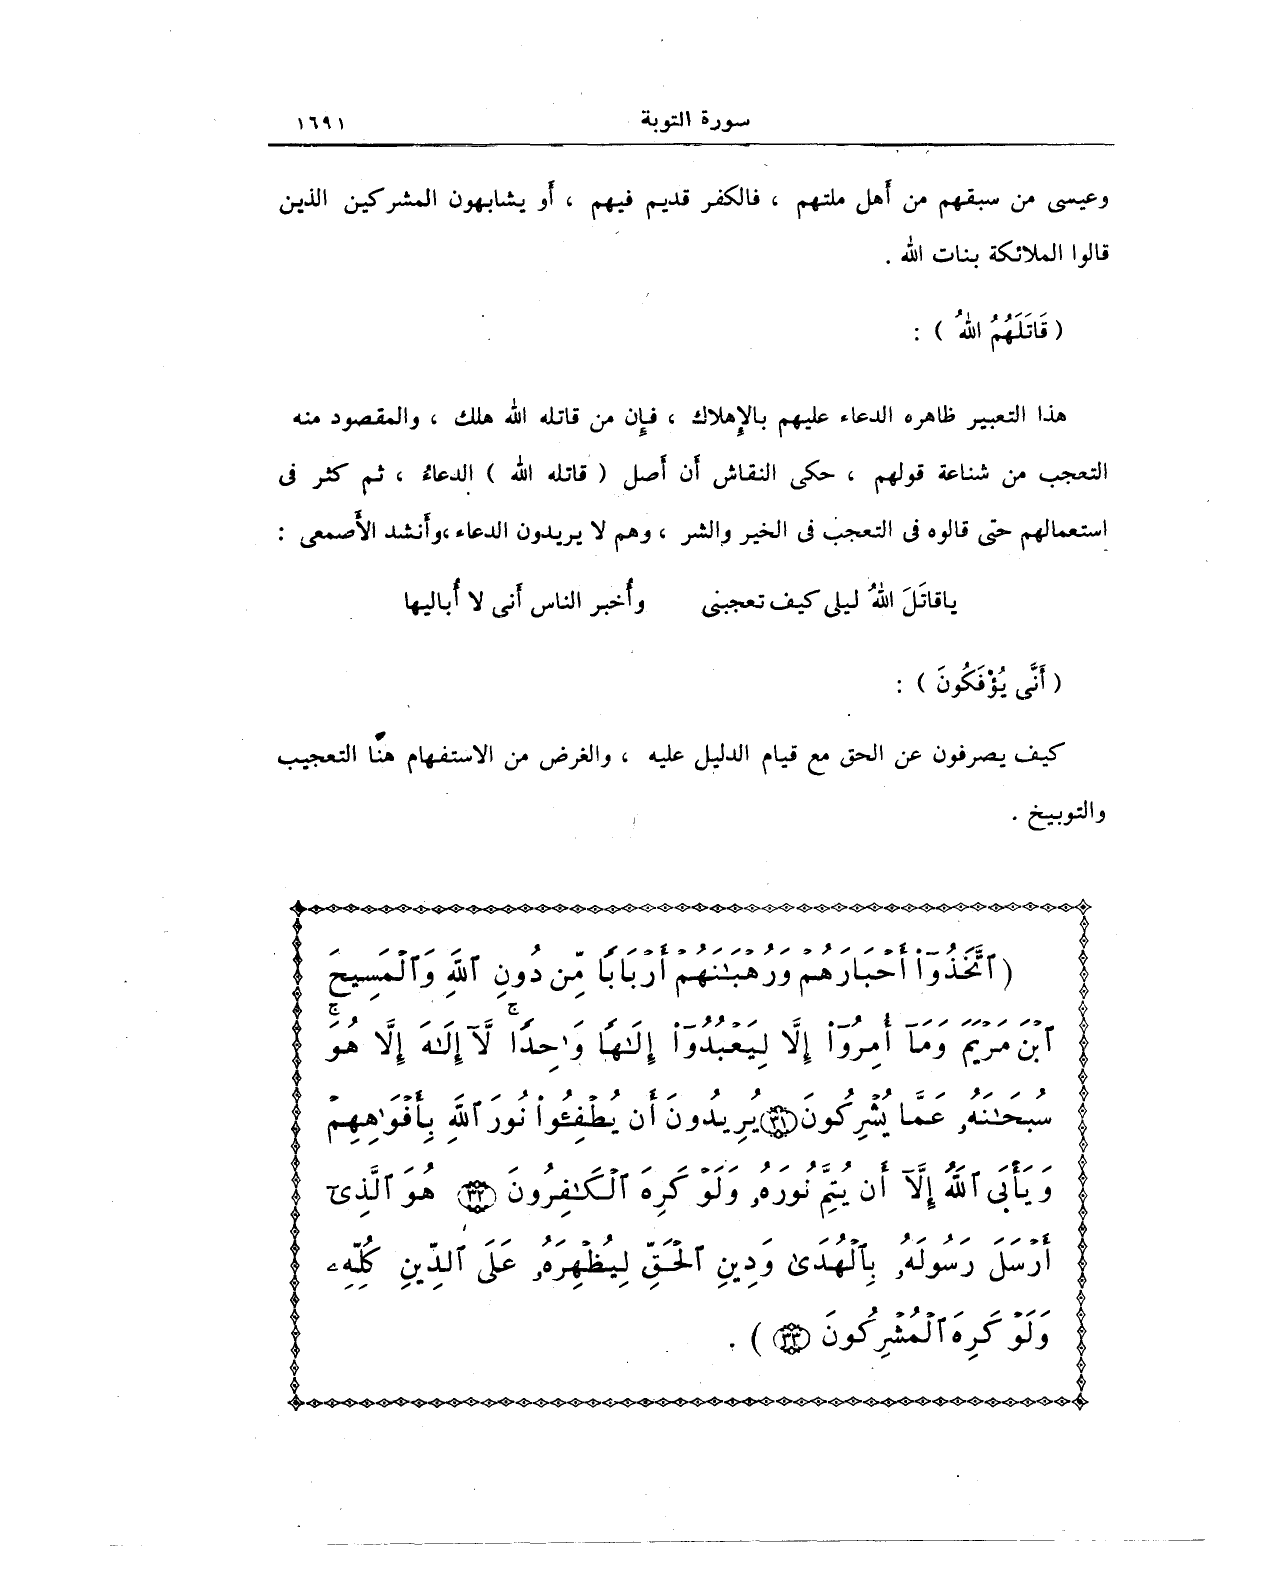 سورة التوبة ١٦٩١
وعيسى من سبقهم من أهل ملتهم ، فالكفر قديم فيهم ، أو يشابهون المشركين الذين
قالوا الملائكة بنات الله .
( قَاتَلَهُمُ اللهُ ) :
هذا التعبير ظاهره الدعاء عليهم بالإهلاك ، فإن من قاتله الله هلك ، والمقصود منه
التعجب من شناعة قولهم ، حكى النقاش أن أصل ( قاتله الله ) الدعاءُ ، ثم كثر فى
استعمالهم حتى قالوه فى التعجب فى الخير والشر ، وهم لا يريدون الدعاء ،وأنشد الأصمعى :
ياقاتَلَ اللهُ ليلى كيف تعجبنى وأُخبر الناس أنى لا أُباليها
( أَنَّى يُؤْفَكُونَ ) :
كيف يصرفون عن الحق مع قيام الدليل عليه ، والغرض من الاستفهام هنا التعجيب
والتوبيخ .
( ٱتَّخَذُوٓا۟ أَحْبَارَهُمْ وَرُهْبَـٰنَهُمْ أَرْبَابًا مِّن دُونِ ٱللَّهِ وَٱلْمَسِيحَ
ٱبْنَ مَرْيَمَ وَمَآ أُمِرُوٓا۟ إِلَّا لِيَعْبُدُوٓا۟ إِلَـٰهًا وَٰحِدًا ۖ لَّآ إِلَـٰهَ إِلَّا هُوَ ۚ
سُبْحَـٰنَهُۥ عَمَّا يُشْرِكُونَ ٣١ يُرِيدُونَ أَن يُطْفِـُٔوا۟ نُورَ ٱللَّهِ بِأَفْوَٰهِهِمْ
وَيَأْبَى ٱللَّهُ إِلَّآ أَن يُتِمَّ نُورَهُۥ وَلَوْ كَرِهَ ٱلْكَـٰفِرُونَ ٣٢ هُوَ ٱلَّذِىٓ
أَرْسَلَ رَسُولَهُۥ بِٱلْهُدَىٰ وَدِينِ ٱلْحَقِّ لِيُظْهِرَهُۥ عَلَى ٱلدِّينِ كُلِّهِۦ
وَلَوْ كَرِهَ ٱلْمُشْرِكُونَ ٣٣ ) .